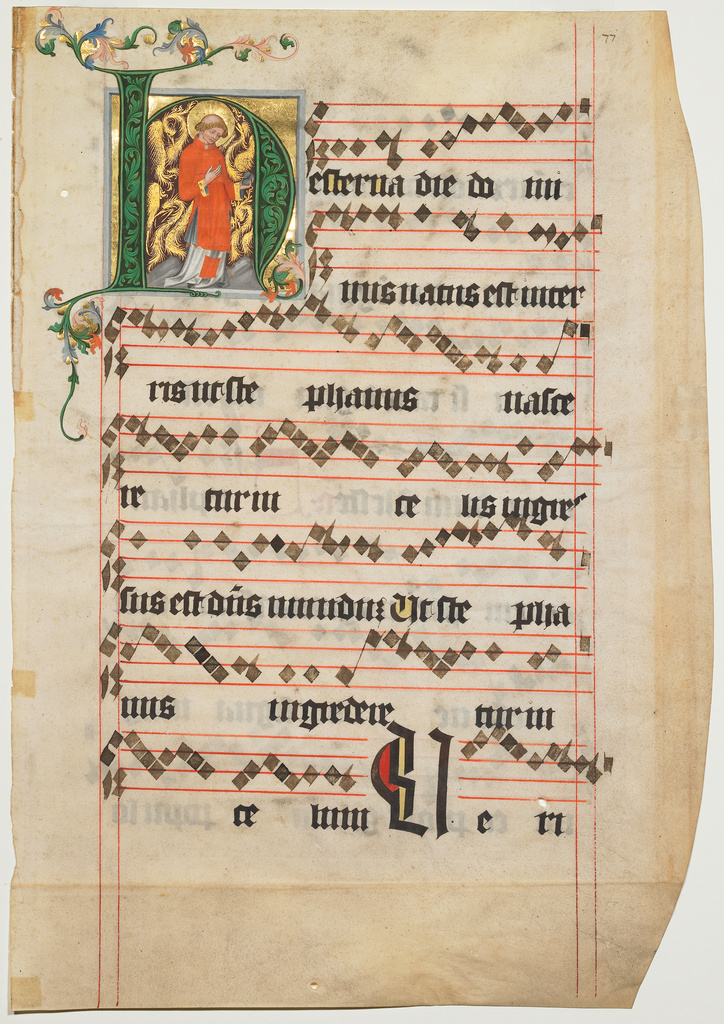 77
Hesterna die do mi
nus natus est in ter
ris ut ste phanus nasce
re tur in ce lis ingres
sus est dn̄s munduꝫ Ut ste pha
nus ingredere tur in
ce lum V e ri